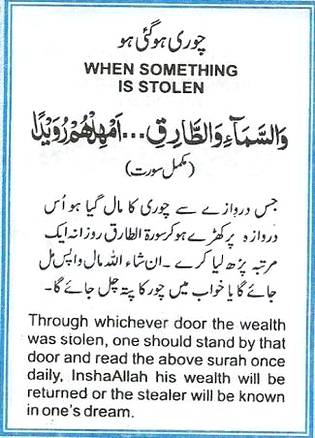 چوری ہو گئی ہو
WHEN SOMETHING
IS STOLEN
وَالسَّمَآءِ وَالطَّارِقِ ... اَمْهِلْهُمْ رُوَيْدًا
(مکمل سورت)
جس دروازے سے چوری کا مال گیا ہو اُس
دروازہ پر کھڑے ہو کر سورۃ الطارق روزانہ ایک
مرتبہ پڑھ لیا کرے۔ ان شاء اللہ مال واپس مل
جائے گا یا خواب میں چور کا پتہ چل جائے گا۔
Through whichever door the wealth
was stolen, one should stand by that
door and read the above surah once
daily, InshaAllah his wealth will be
returned or the stealer will be known
in one's dream.